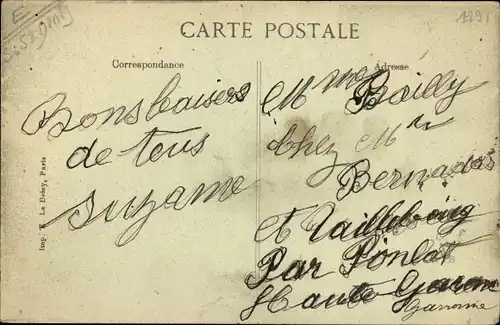 CARTE POSTALE
Correspondance
Adresse
Bons baisers
de tous
Suzanne
Mme Bailly
Chez Mr
Bernadas
et Taillebourg
Par Ponlat
Haute Garonne
Garonne
Imp. E. Le Deley, Paris